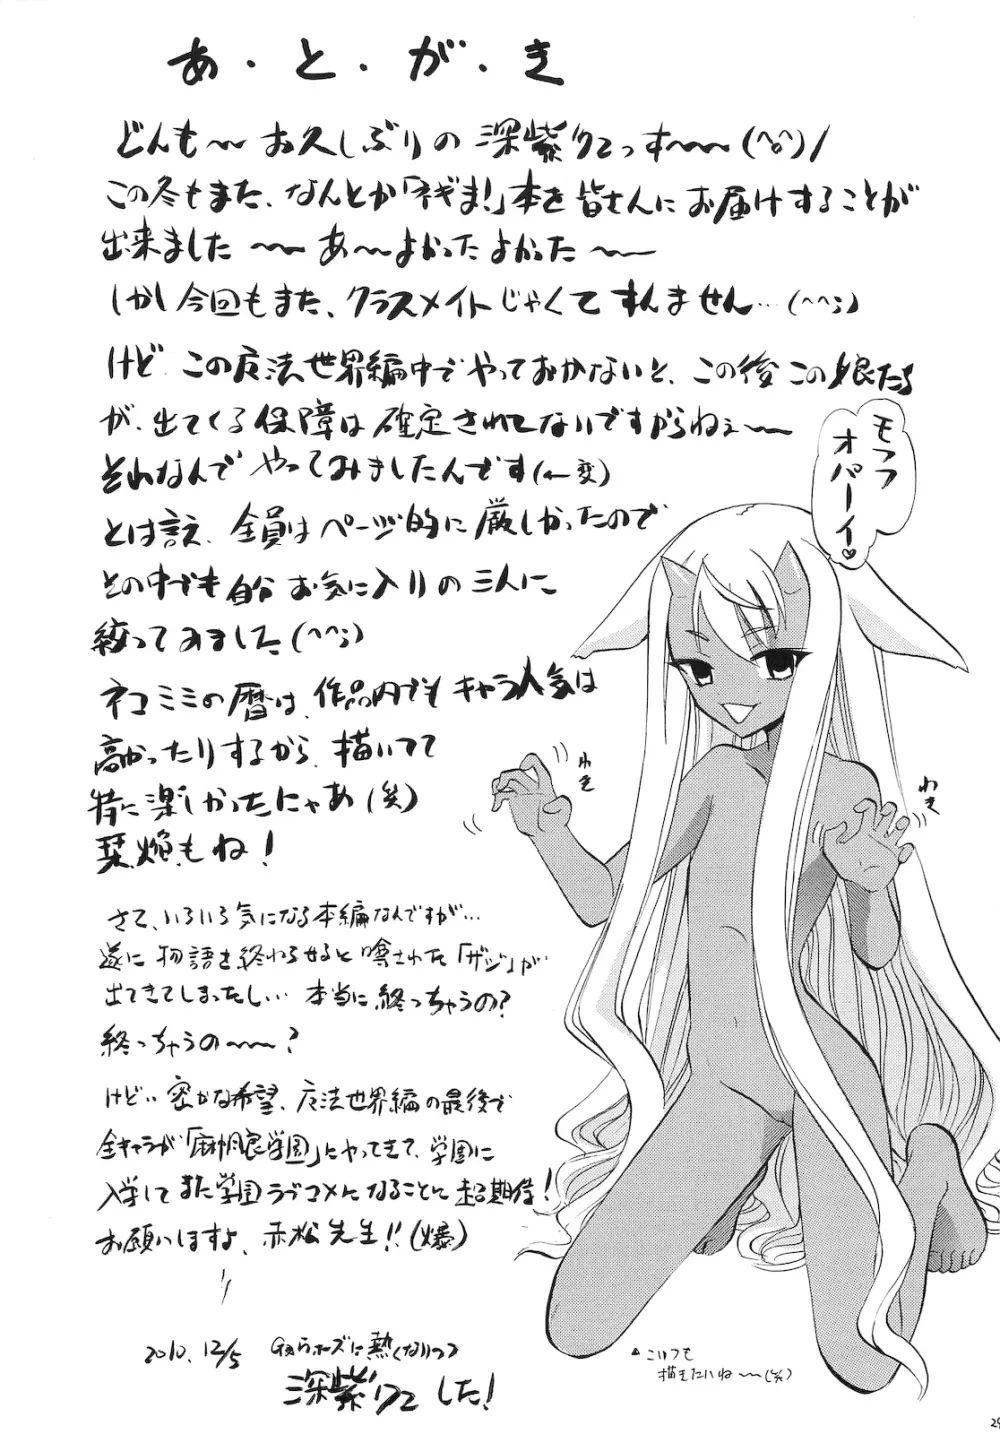 あ・と・が・き
どんも〜 お久しぶりの 深紫クこっす〜〜(^o^)/
この冬もまた、なんとか「ネギま!」本を皆さんにお届けすることが
出来ました 〜〜 あ〜よかったよかった 〜〜
しかし今回もまた、クラスメイトじゃくてすんません…(^^;)
けど この魔法世界編中でやっておかないと、この後この娘たち
が、出てくる保障は確定されてないですからねぇ〜〜
それなんで やってみましたんです(←変)
とは言え、全員はページ的に厳しかったので
その中でも自分お気に入りの三人に
絞ってみました(^^;)
ネコミミの暦は、作品内でもキャラ人気は
高かったりするから、描いてて
特に楽しかったにゃあ(笑)
栞、焔もね!
さて、いろいろ気になる本編なんですが…
遂に物語を終わらせると噂された「ザジ」が…
出てきてしまったし… 本当に終っちゃうの?
終っちゃうの〜〜?
けど… 密かな希望、魔法世界編の最後で
全キャラが「麻帆良学園」にやってきて、学園に
入学してまた学園ラブコメになることに超期待!
お願いしますよ、赤松先生!!(爆)
2010.12/5
に熱くなりつつ
深紫クこ した!
モフフ
オパーイ♡
わき
わき
▲こいつも
描きたいね〜(笑)
29